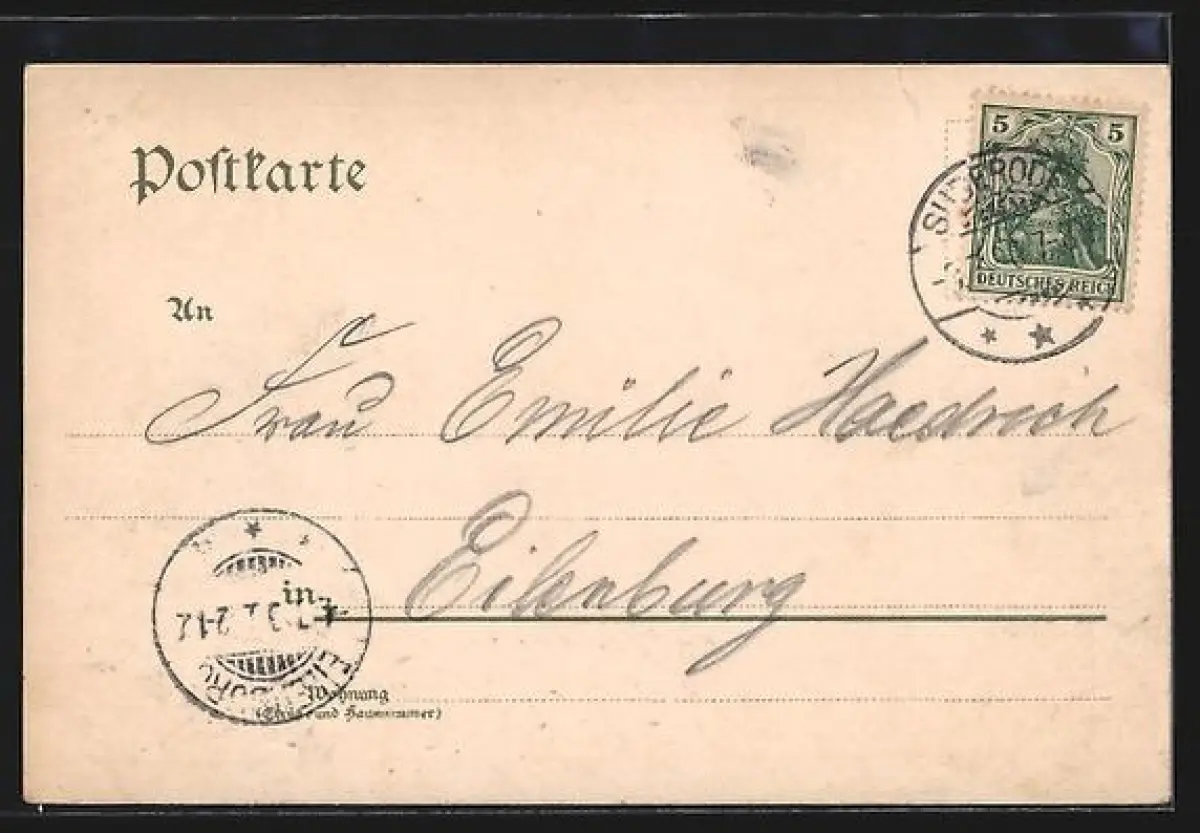 Postkarte
5 5
SUDERODE
DEUTSCHES REICH
An
Frau Emilie Haedrich
in Eilenburg
Wohnung
(Straße und Hausnummer)